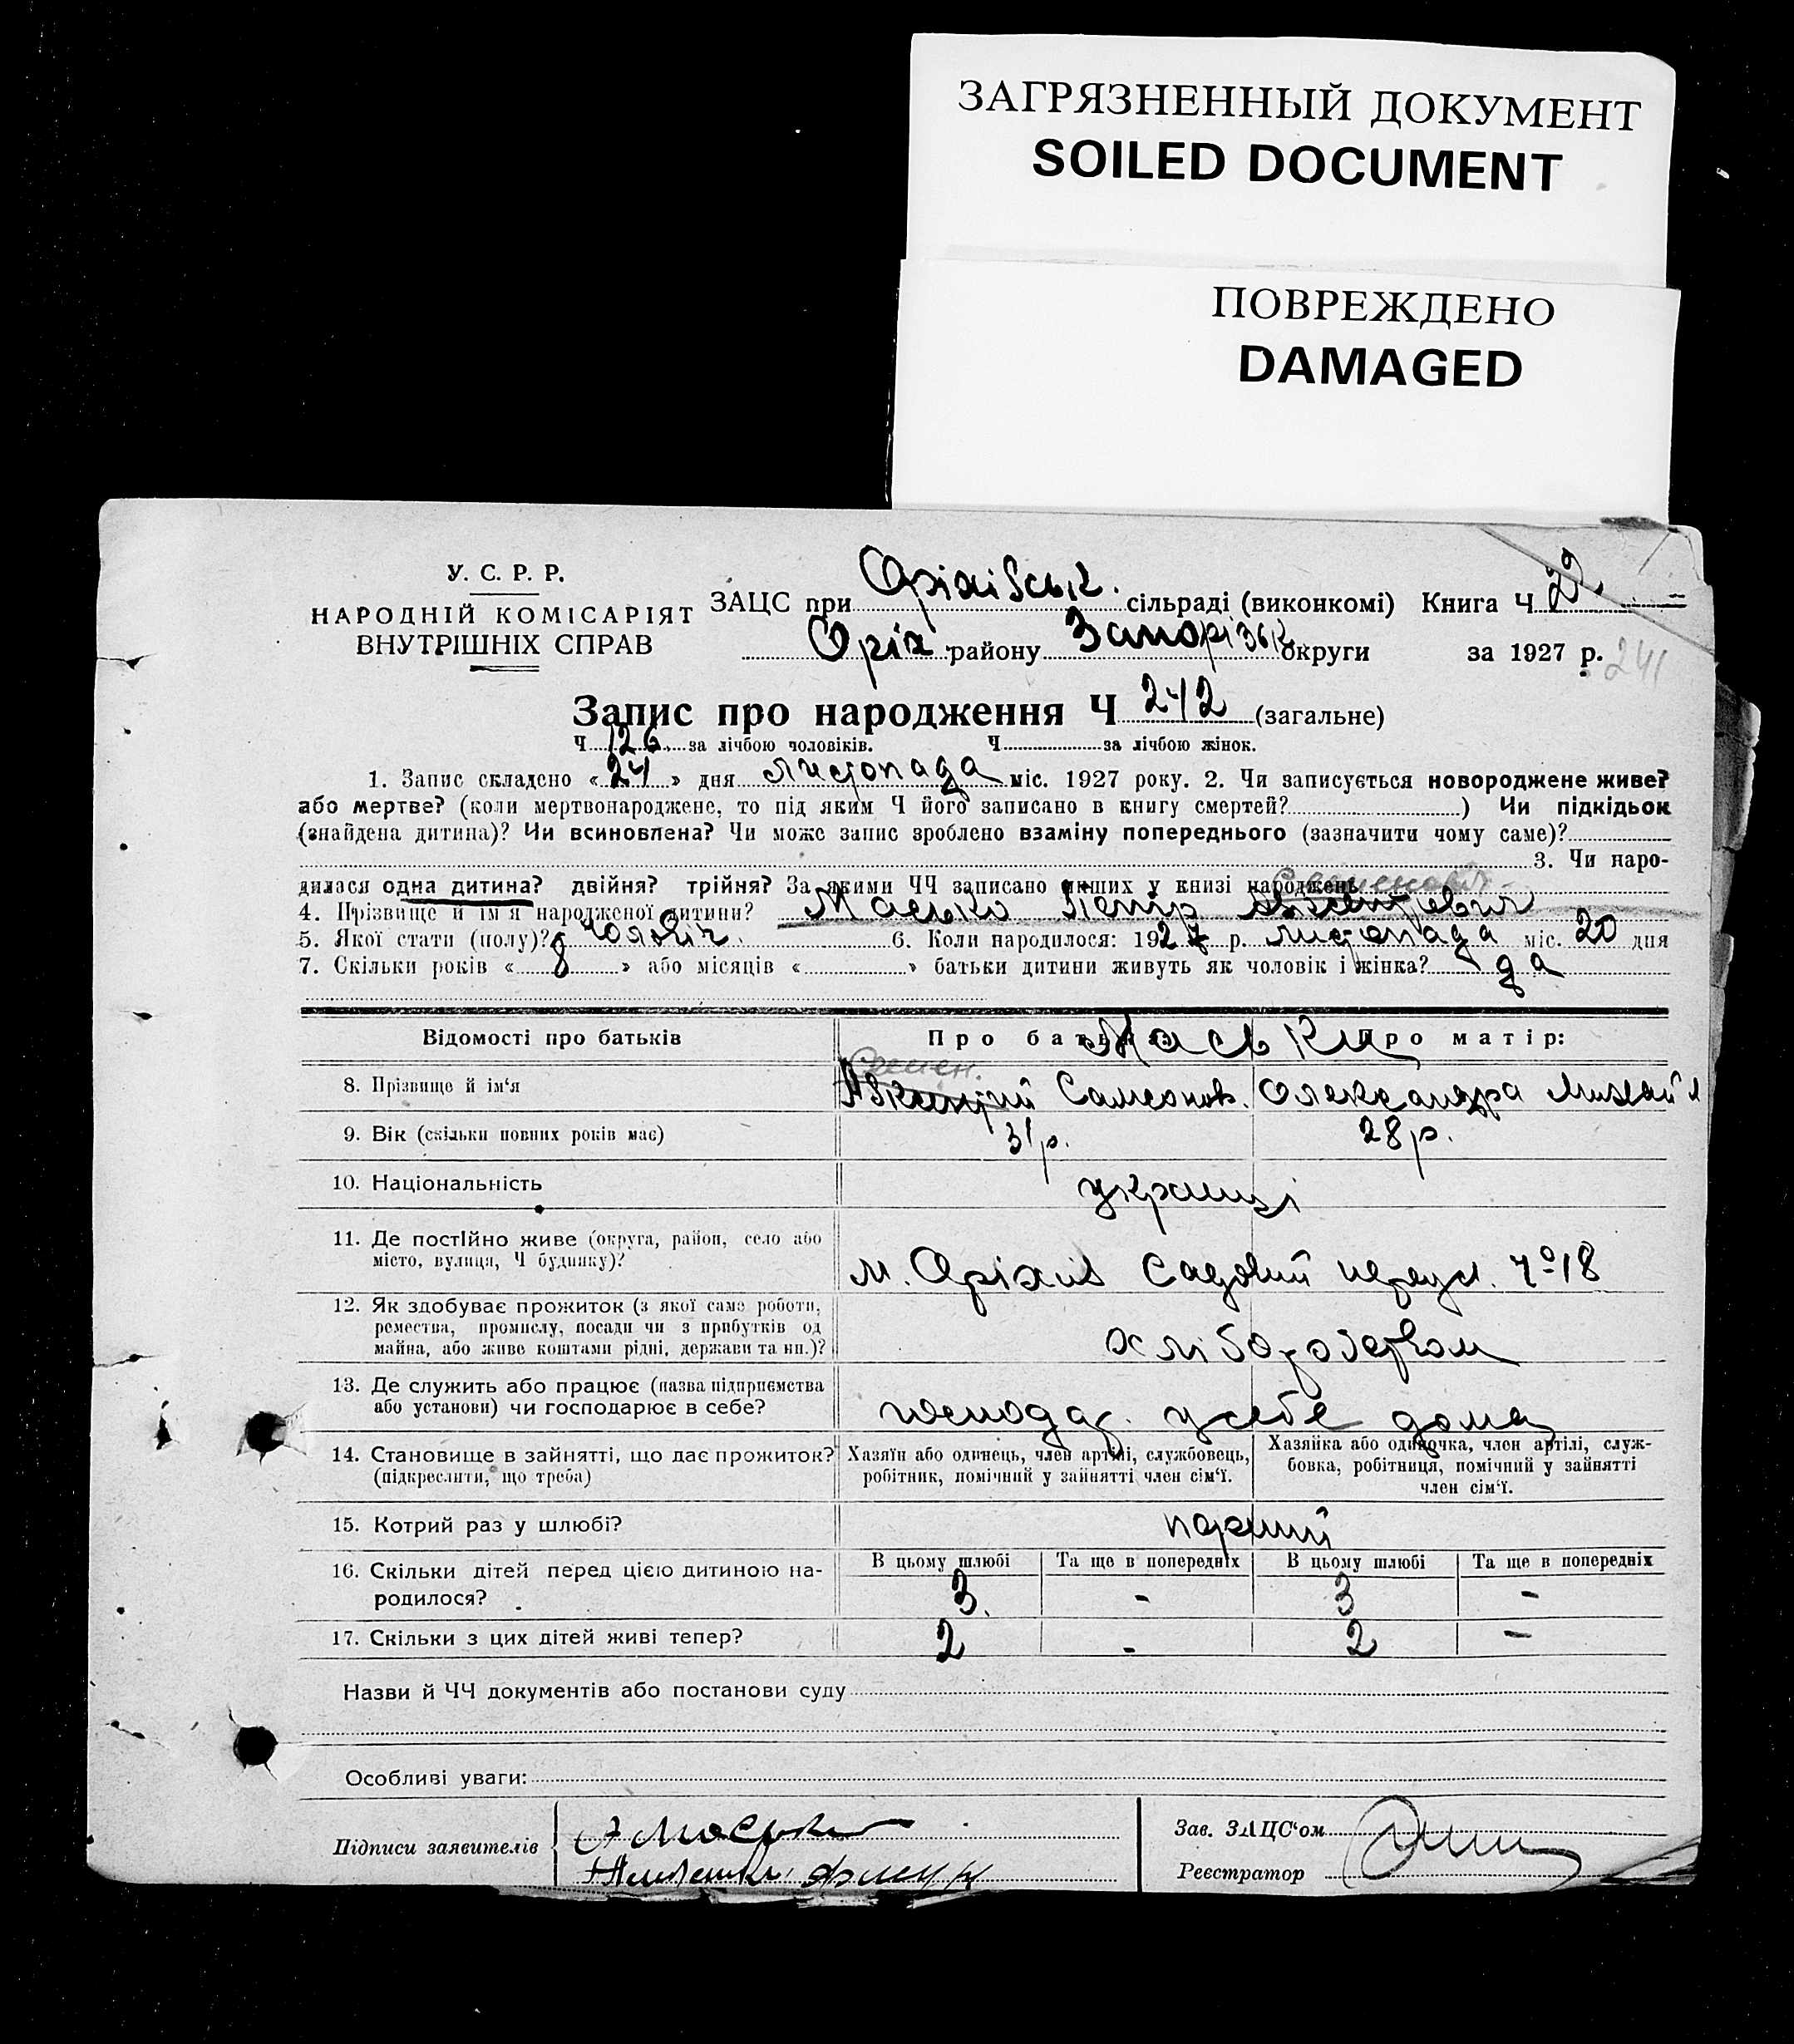 ЗАГРЯЗНЕННЫЙ ДОКУМЕНТ
SOILED DOCUMENT
ПОВРЕЖДЕНО
DAMAGED
У. С. Р. Р.
НАРОДНІЙ КОМІСАРІЯТ
ВНУТРІШНІХ СПРАВ
ЗАЦС при Оріхівськ. сільраді (виконкомі) Книга Ч 22
Оріх. району Запорізьк округи за 1927 р. 241
Запис про народження Ч 242 (загальне)
Ч 126 за лічбою чоловіків. Ч за лічбою жінок.
1. Запис складено «24» дня листопада міс. 1927 року. 2. Чи записується новороджене живе?
або мертве? (коли мертвонароджене, то під яким Ч його записано в книгу смертей? ) Чи підкідьок
(знайдена дитина)? Чи всиновлена? Чи може запис зроблено взаміну попереднього (зазначити чому саме)?
3. Чи наро-
дилася одна дитина? двійня? трійня? За якими ЧЧ записано инших у книзі народжень
Семенович
4. Прізвище й ім'я народженої дитини? Масько Петір
5. Якої стати (полу)? чоловіч. 6. Коли народилося: 1927 р. листопада міс. 20 дня
7. Скільки років « 8 » або місяців « » батьки дитини живуть як чоловік і жінка? да
Відомості про батьків Про батька: Про матір:
Маськи
Семен.
8. Прізвище й ім'я Самсонов. Олександра Михайл
9. Вік (скільки повних років має) 31 р. 28 р.
10. Національність українці
11. Де постійно живе (округа, район, село або
місто, вулиця, Ч будинку)? м. Оріхів Садовий переул. Ч° 18
12. Як здобуває прожиток (з якої саме роботи,
ремества, промислу, посади чи з прибутків од
майна, або живе коштами рідні, держави та ин.)? хліборобством
13. Де служить або працює (назва підприємства
або установи) чи господарює в себе? господар. у себе дома
14. Становище в зайнятті, що дає прожиток? Хазяїн або одинець, член артілі, службовець, Хазяйка або одиночка, член артілі, служ-
(підкреслити, що треба) робітник, помічний у зайнятті член сім'ї. бовка, робітниця, помічний у зайнятті
член сім'ї.
15. Котрий раз у шлюбі? перший
16. Скільки дітей перед цією дитиною на- В цьому шлюбі Та ще в попередніх В цьому шлюбі Та ще в попередніх
родилося? 3. - 3 -
17. Скільки з цих дітей живі тепер? 2 - 2 -
Назви й ЧЧ документів або постанови суду
Особливі уваги:
Підписи заявителів
Зав. ЗАЦС'ом
Реєстратор